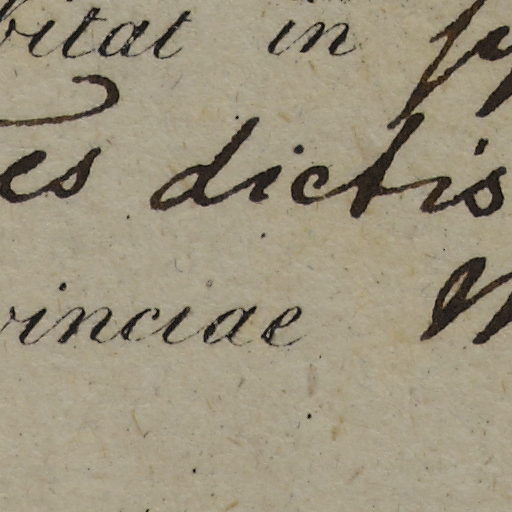 bitat in
es dictis
vinciae